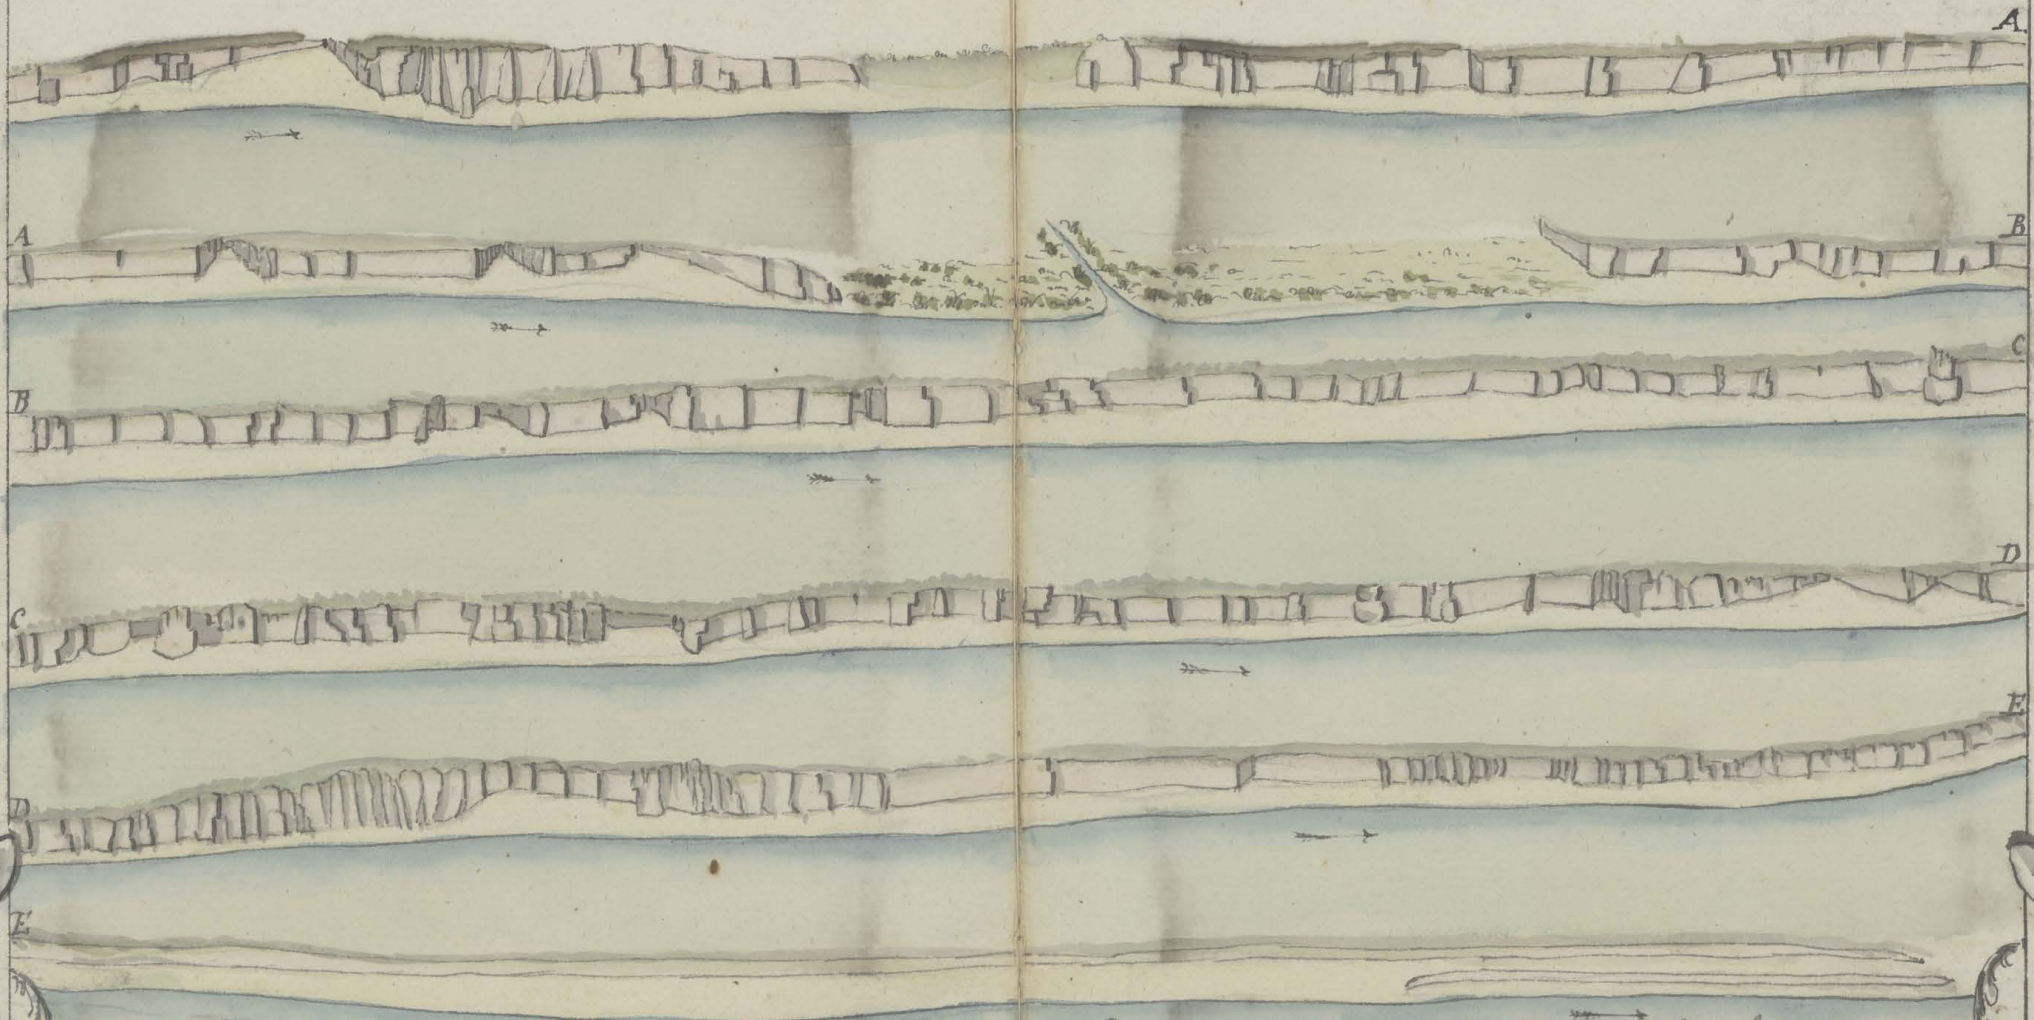 A.
A B
B C
C D
D E
E